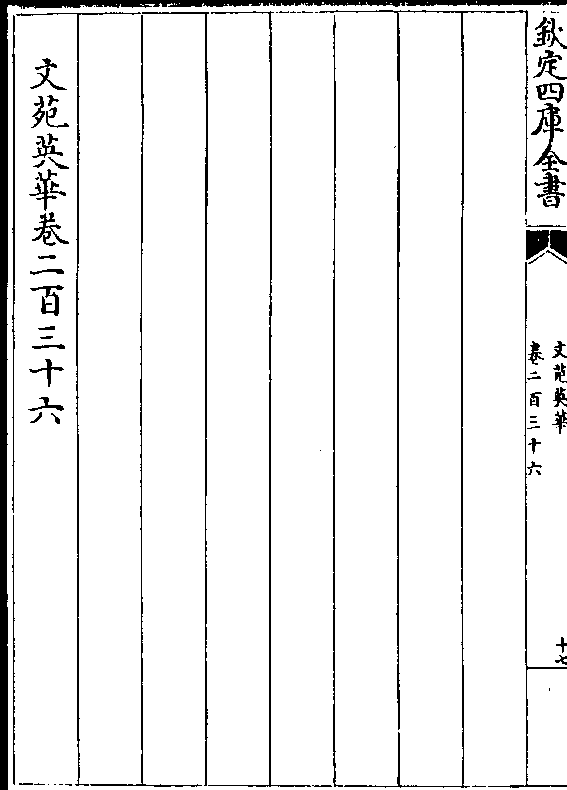 欽定四庫全書
文苑英華
卷二百三十六
十七
文苑英華卷二百三十六